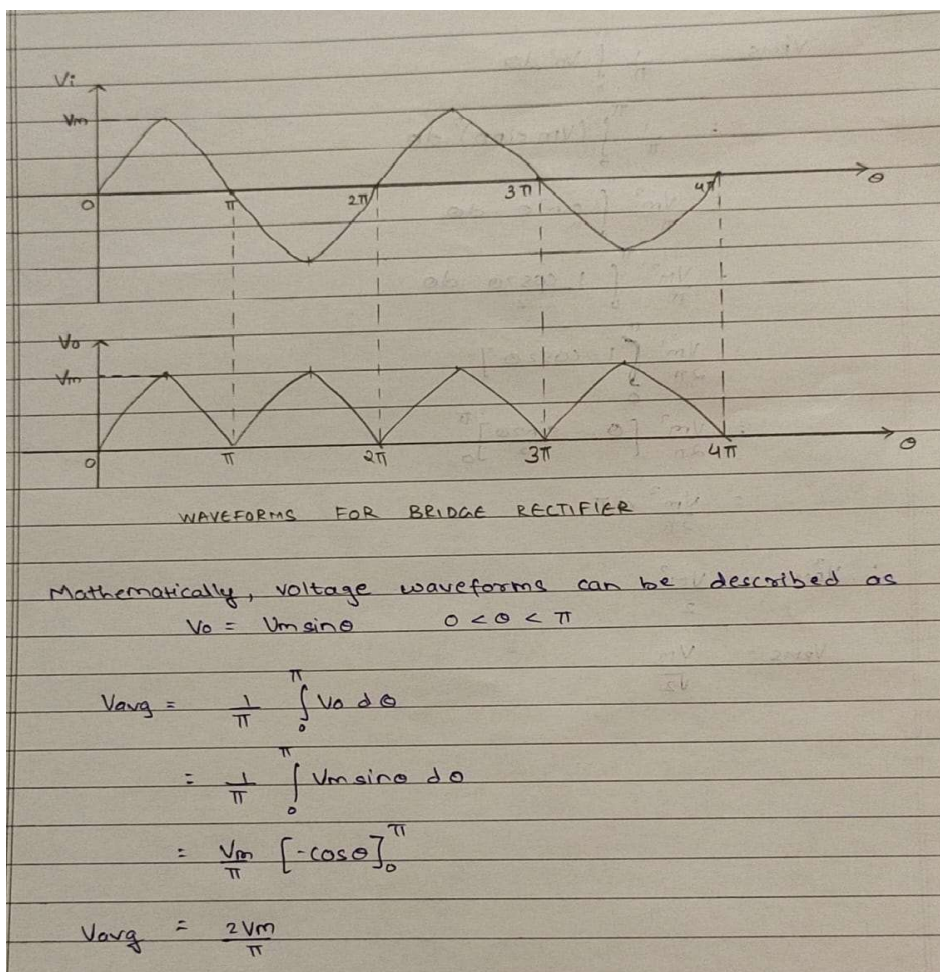 Vi
Vm
0 π 2π 3π 4π θ
Vo
Vm
0 π 2π 3π 4π θ
WAVEFORMS FOR BRIDGE RECTIFIER
Mathematically, voltage waveforms can be described as
Vo = Vm sinθ 0 < θ < π
Vavg = 1/π ∫₀^π Vo dθ
= 1/π ∫₀^π Vm sinθ dθ
= Vm/π [-cosθ]₀^π
Vavg = 2Vm/π